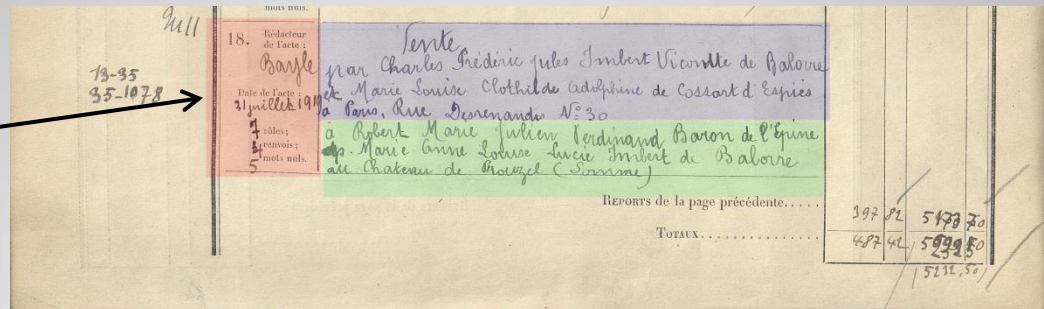 mots nuls.
18. Rédacteur
de l'acte :
Bayle
Date de l'acte :
31 juillet 1919
7 rôles ;
renvois ;
5 mots nuls.
13-35
35-1078
Vente
par Charles Frédéric Jules Imbert Vicomte de Balorre
et Marie Louise Clothilde Adolphine de Cossart d'Espies
à Paris, Rue Desrenaudes N° 30
à Robert Marie Julien Ferdinand Baron de l'Epine
Marie Anne Louise Lucie Imbert de Balorre
au Chateau de Prouzel (Somme)
REPORTS de la page précédente.....
397 82
TOTAUX
487 42
5232,50